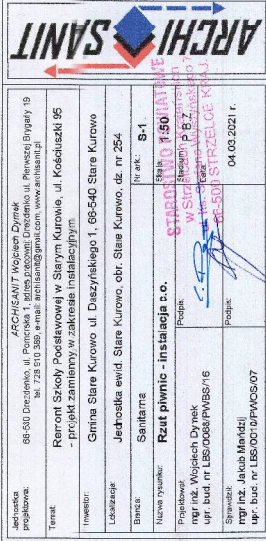 ARCHI SANIT
Jednostka projektowa:
ARCHISANIT Wojciech Dymek
66-530 Drezdenko, ul. Pomorska 1, adres pracowni: Drezdenko ul. Pierwszej Brygady 19
tel. 728 910 389, e-mail: archisanit@gmail.com, www.archisanit.pl
Temat:
Remont Szkoły Podstawowej w Starym Kurowie, ul. Kościuszki 95
- projekt zamienny w zakresie instalacyjnym
Inwestor:
Gmina Stare Kurowo ul. Daszyńskiego 1, 66-540 Stare Kurowo
Lokalizacja:
Jednostka ewid. Stare Kurowo, obr. Stare Kurowo, dz. nr 254
Branża:
Sanitarna
Nr ark.:
S-1
Nazwa rysunku:
Rzut piwnic - instalacja c.o.
Skala:
1:50
Projektował:
mgr inż. Wojciech Dymek
upr. bud. nr LBS/0088/PWBS/16
Podpis:
Stadium:
P.B.Z.
Data:
04.03.2021 r.
Sprawdził:
mgr inż. Jakub Mańdzij
upr. bud. nr LBS/0010/PWOS/07
Podpis:
STAROSTWO POWIATOWE
w Strzelcach Krajeńskich
STRZELCE KRAJ.